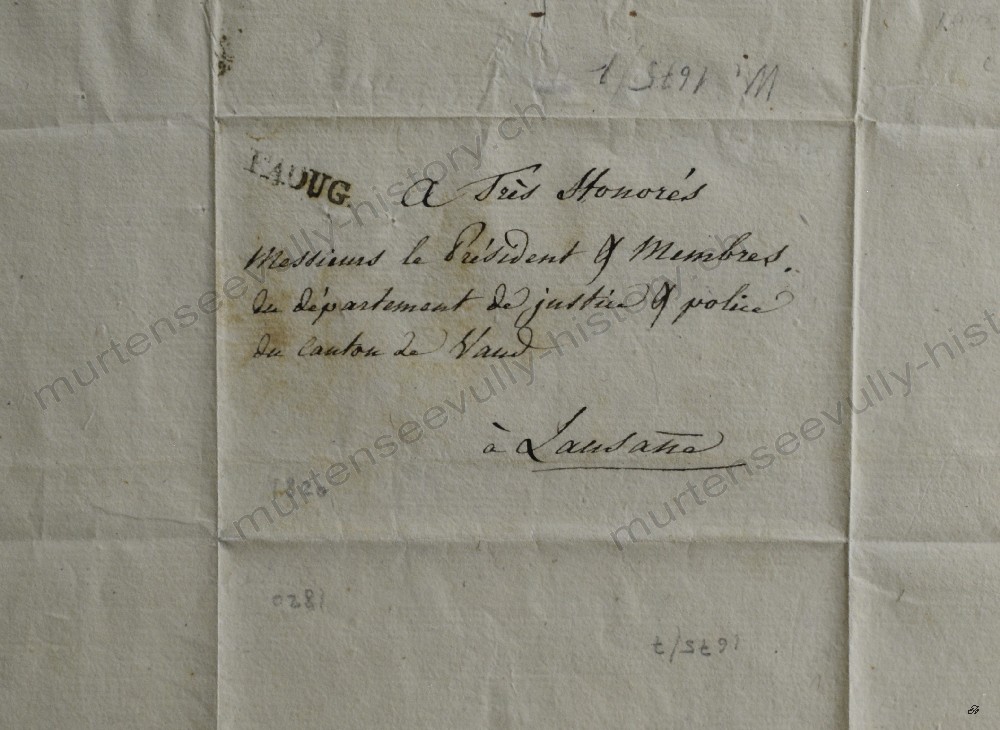 W. 1675/7
FAOUG.
A Très Honorés
Messieurs le Président & Membres.
du département de justice & police
du Canton de Vaud
à Lausanne
1820
1675/7
murtenseevully-history.ch
murtenseevully-history.ch
murtenseevully-history